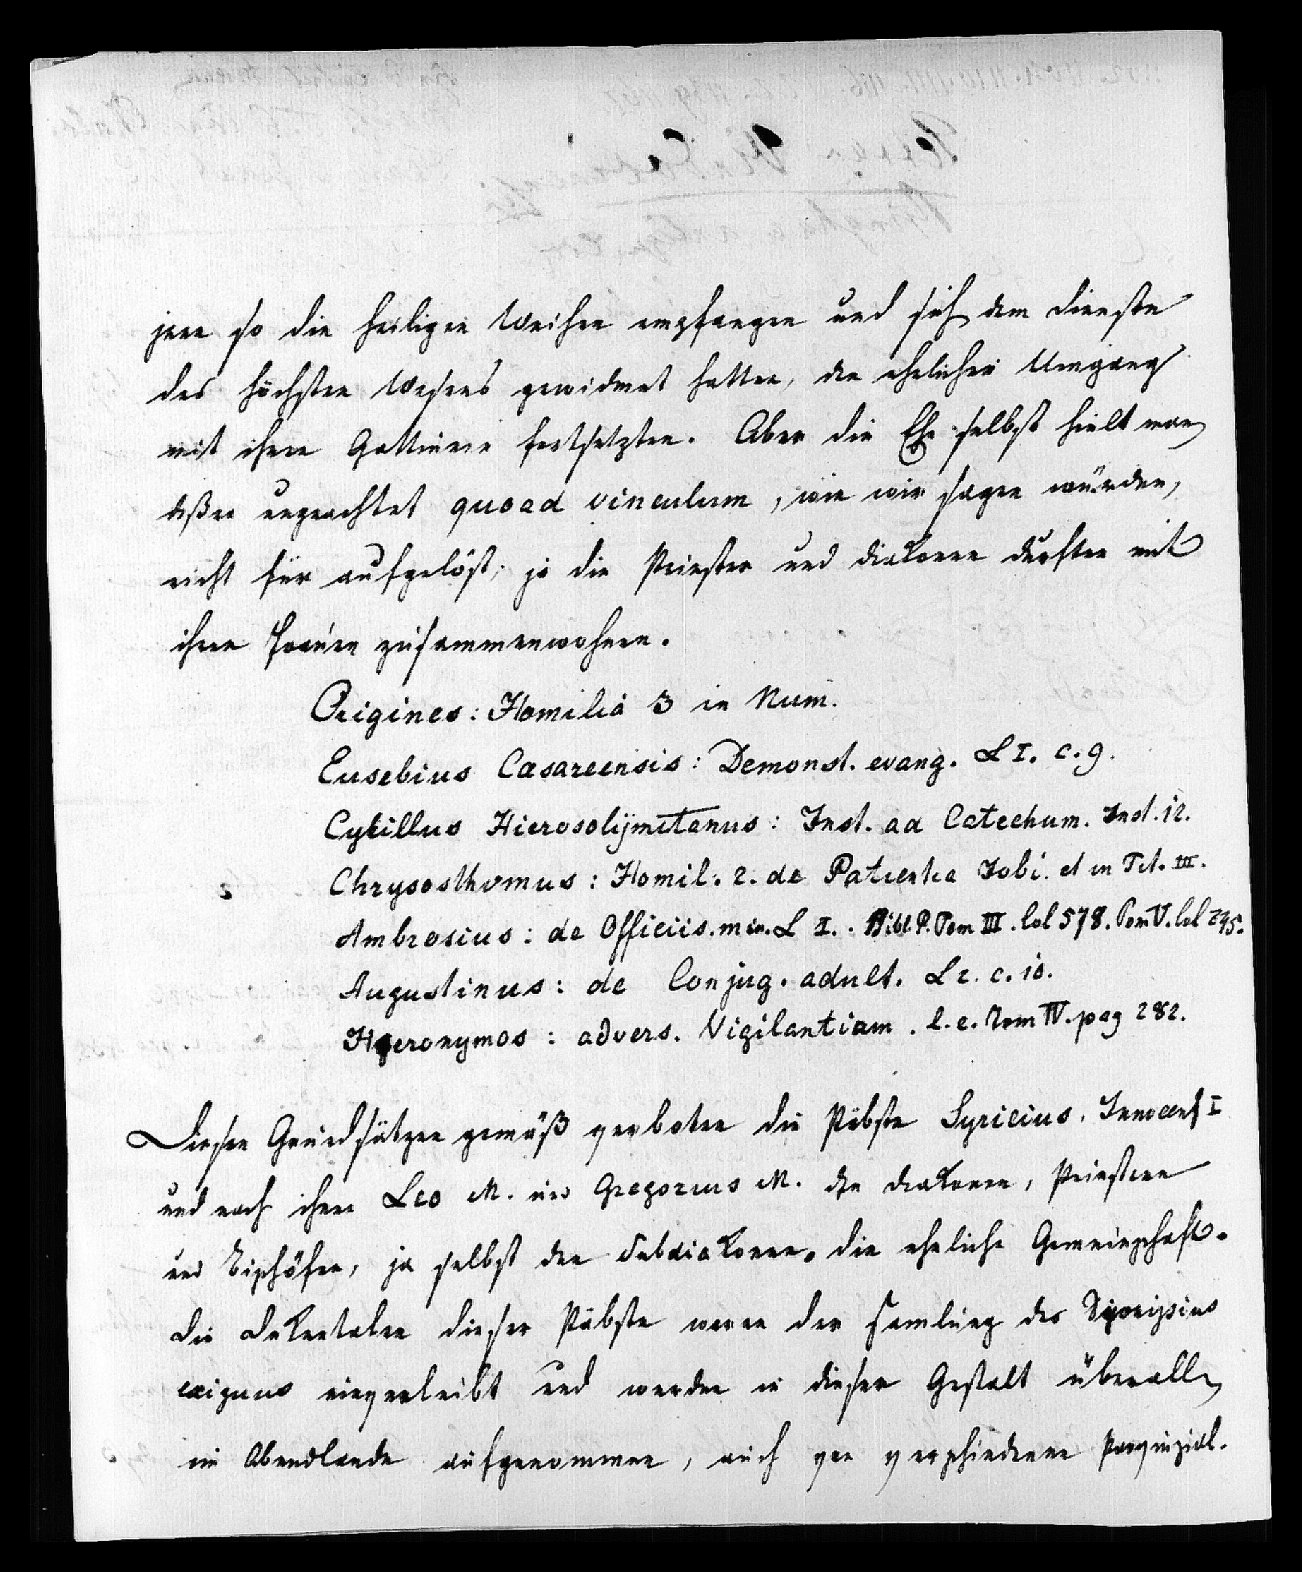 jene so die heiligen Weihen empfangen und sich dem Dienste
des höchsten Wesens gewidmet hatten, den ehelichen Umgang
mit ihren Gattinen festsetzten. Aber die Ehe selbst hielt man
deßen ungeachtet quoad vinculum, wie wir sagen würden,
nicht für aufgelöst; ja die Priester und Diakonen durften mit
ihren Frauen zusammenwohnen.
Origines: Homilia 3 in Num.
Eusebius Caesareensis: Demonst. evang. L I. c. 9.
Cyrillus Hierosolÿmitanus: Inst. ad Catechum. Inst. 12.
Chrysosthomus: Homil. 2. de Patientia Jobi. et in Tit. III.
Ambrosius: de Officiis. min. L I. Bibl. P. Tom III. Col 578. Tom V. Col 295.
Augustinus: de Conjug. adult. L 2. c. 10.
Hyeronymos: advers. Vigilantiam. l. c. Tom IV. pag 282.
Diesen Grundsätzen gemäß verboten die Päbste Syricius. Innocenz I
und nach ihnen Leo M. und Gregorius M. den Diakonen, Priestern
und Bischöfen, ja selbst den Subdiakonen, die eheliche Gemeinschaft.
Die Dekretalen dieser Päbste waren der Samlung des Dyonisius
exiguus eingverleibt und wurden in dieser Gestalt überall
im Abendlande aufgenommen, auch von verschiedenen Provinzial-